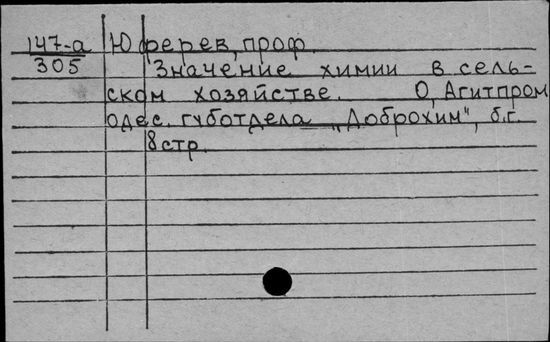 147-а Юферев, проф.
305 Значение химии в сель-
ском хозяйстве. О, Агитпром
одес. губотдела "Доброхим", б.г.
8 стр.